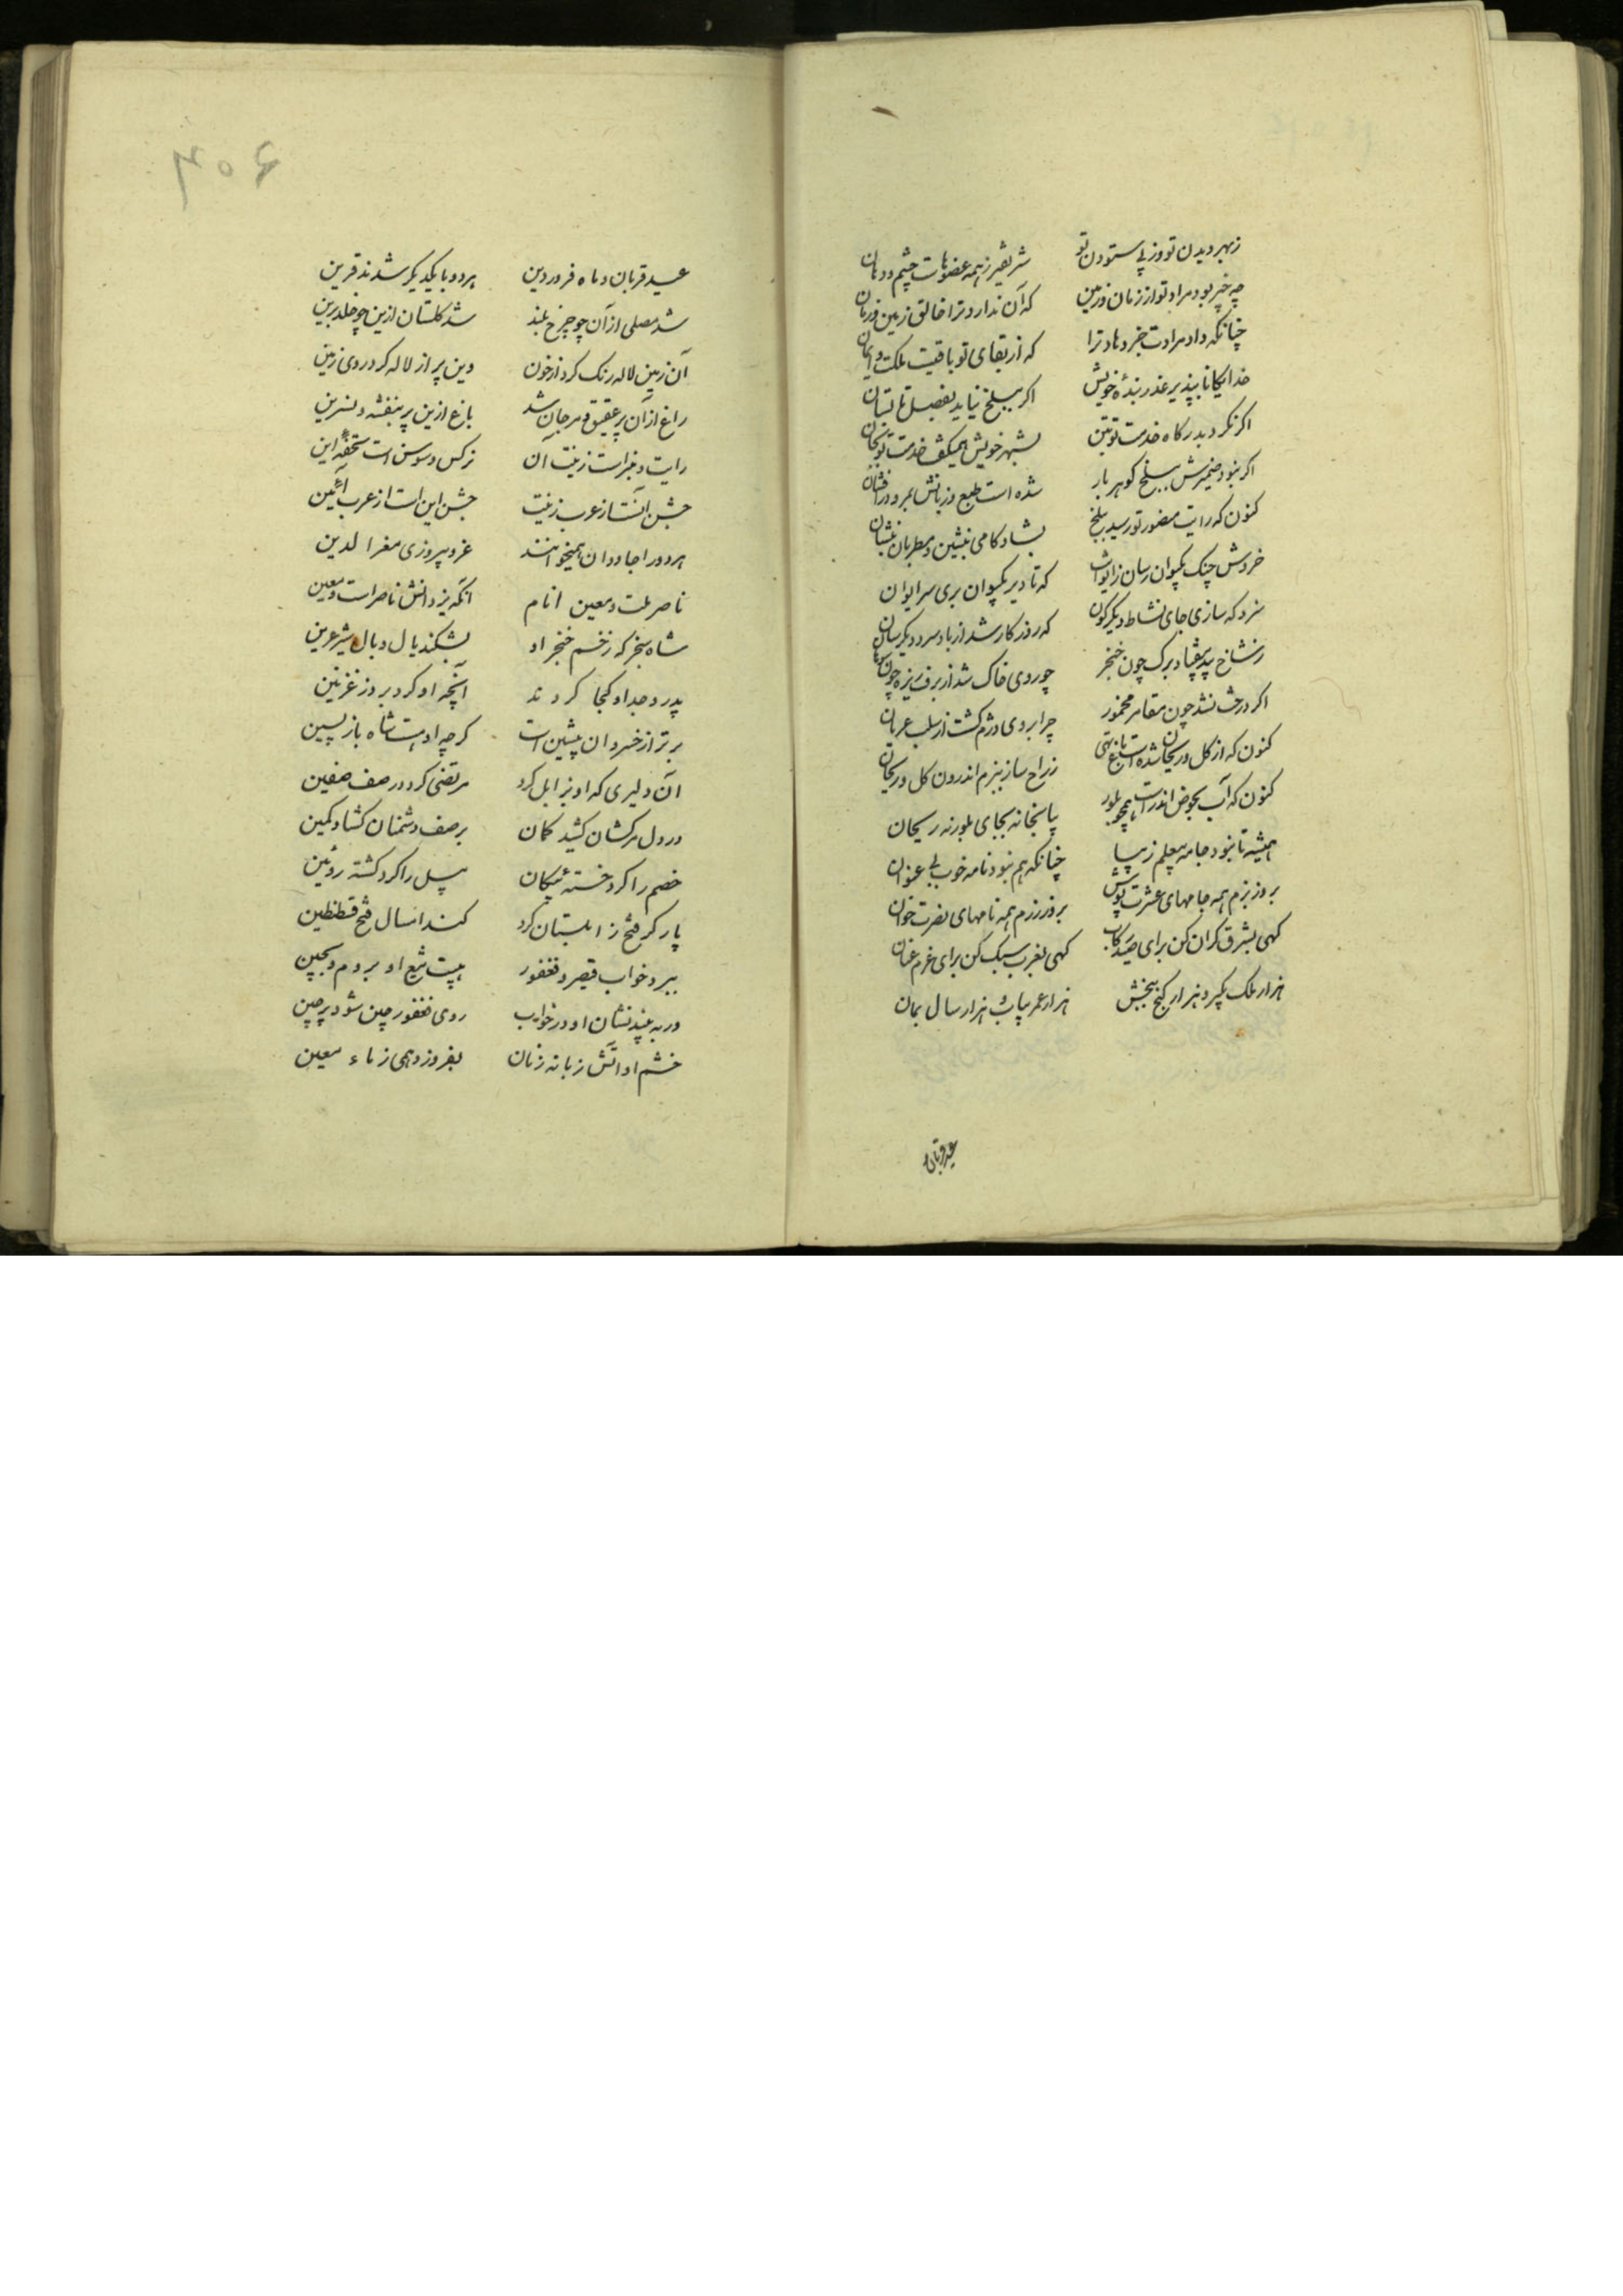 زبهر دیدن تو وز پی ستودن تو شریفتر ز همه عضوهاست چشم و دهان
چه چیز بود مراد تو از زمان و زمین که آن نداد ترا خالق زمین و زمان
چنانکه داد مرادت جزو هاد ترا که از بقای تو باقیست ملکت و ایمان
خدایگانا بپذیر عذر بندهٔ خویش اگر ببلخ نیاید بفصل تابستان
اگر نکرد بدرگاه خدمت تو بتن بشهر خویش همیکند خدمت تو بجان
اگر نبود ضمیرش ببلخ گوهر بار شده است طبع و زبانش بمرو درافشان
کنون که رایت منصور تو رسید ببلخ بشاد کامی بنشین و مطربان بنشان
خروش چنگ بکیوان رسان ز ایوانت که تا دیر بکیوان بری سر ایوان
سزد که سازی جای نشاط دیگرگون که روزگار شد از باد سرد دیگرسان
ز شاخ بید بیفتاد برگ چون خنجر چو روی خاک شد از برف ریزه چون سوهان
اگر درخت نشد چون مقامر مخمور چرا بروی دژم گشت از سلب عریان
کنون که از گل و ریحان شده است باغ تهی ز راح ساز ببزم اندرون گل و ریحان
کنون که آب بحوض اندر است همچو بلور بیاسخانه بجای بلور نه ریحان
همیشه تا نبود جامه بی علم زیبا چنانکه هم نبود نامه خوب بی عنوان
بروز بزم همه جامهای عشرت پوش بروز رزم همه نامهای نصرت خوان
گهی بشرق گران کن برای صید رکاب گهی بغرب سبک کن برای عزم عنان
هزار ملک بگیر و هزار گنج ببخش هزار عمر بیاب و هزار سال بمان
عید قربان
۴۰۶
عید قربان و ماه فروردین هر دو با یکدیگر شدند قرین
شد مصلی از آن چو چرخ بلند شد گلستان ازین چو خلد برین
آن زمین لاله رنگ کرد از خون وین پر از لاله کرد روی زمین
راغ از آن پر عقیق و مرجان شد باغ ازین پر بنفشه و نسرین
رایت و منبر است زینت آن نرگس و سوسن است تحفهٔ این
جشن آنست از عرب زینت جشن این است از عرب آئین
هر دو را جاودان همیخواهند عز و پیروزی معزالدین
ناصر ملت و معین انام آنکه یزدانش ناصر است و معین
شاه سنجر که زخم خنجر او بشکند یال و بال شیر عرین
پدر و جد او کجا کردند آنچه او کرد بروز غزنین
برتر از خسروان پیشین است گرچه او هست شاه باز پسین
آن دلیری که او بزابل کرد مرتضی کرد در صف صفین
در دل سرکشان کشید کمان بر صف دشمنان گشاد کمین
خصم را کرد خستهٔ پیکان پیل را کرد کشته روئین
پار گر فتح زابلستان کرد کند امسال فتح قسطنطین
ببرد خواب قیصر و فغفور هیبت تیغ او بروم و بچین
ور به بیند نشان او در خواب روی فغفور چین شود پرچین
خشم او آتش زبانه زنان بفروزد همی ز ماء معین